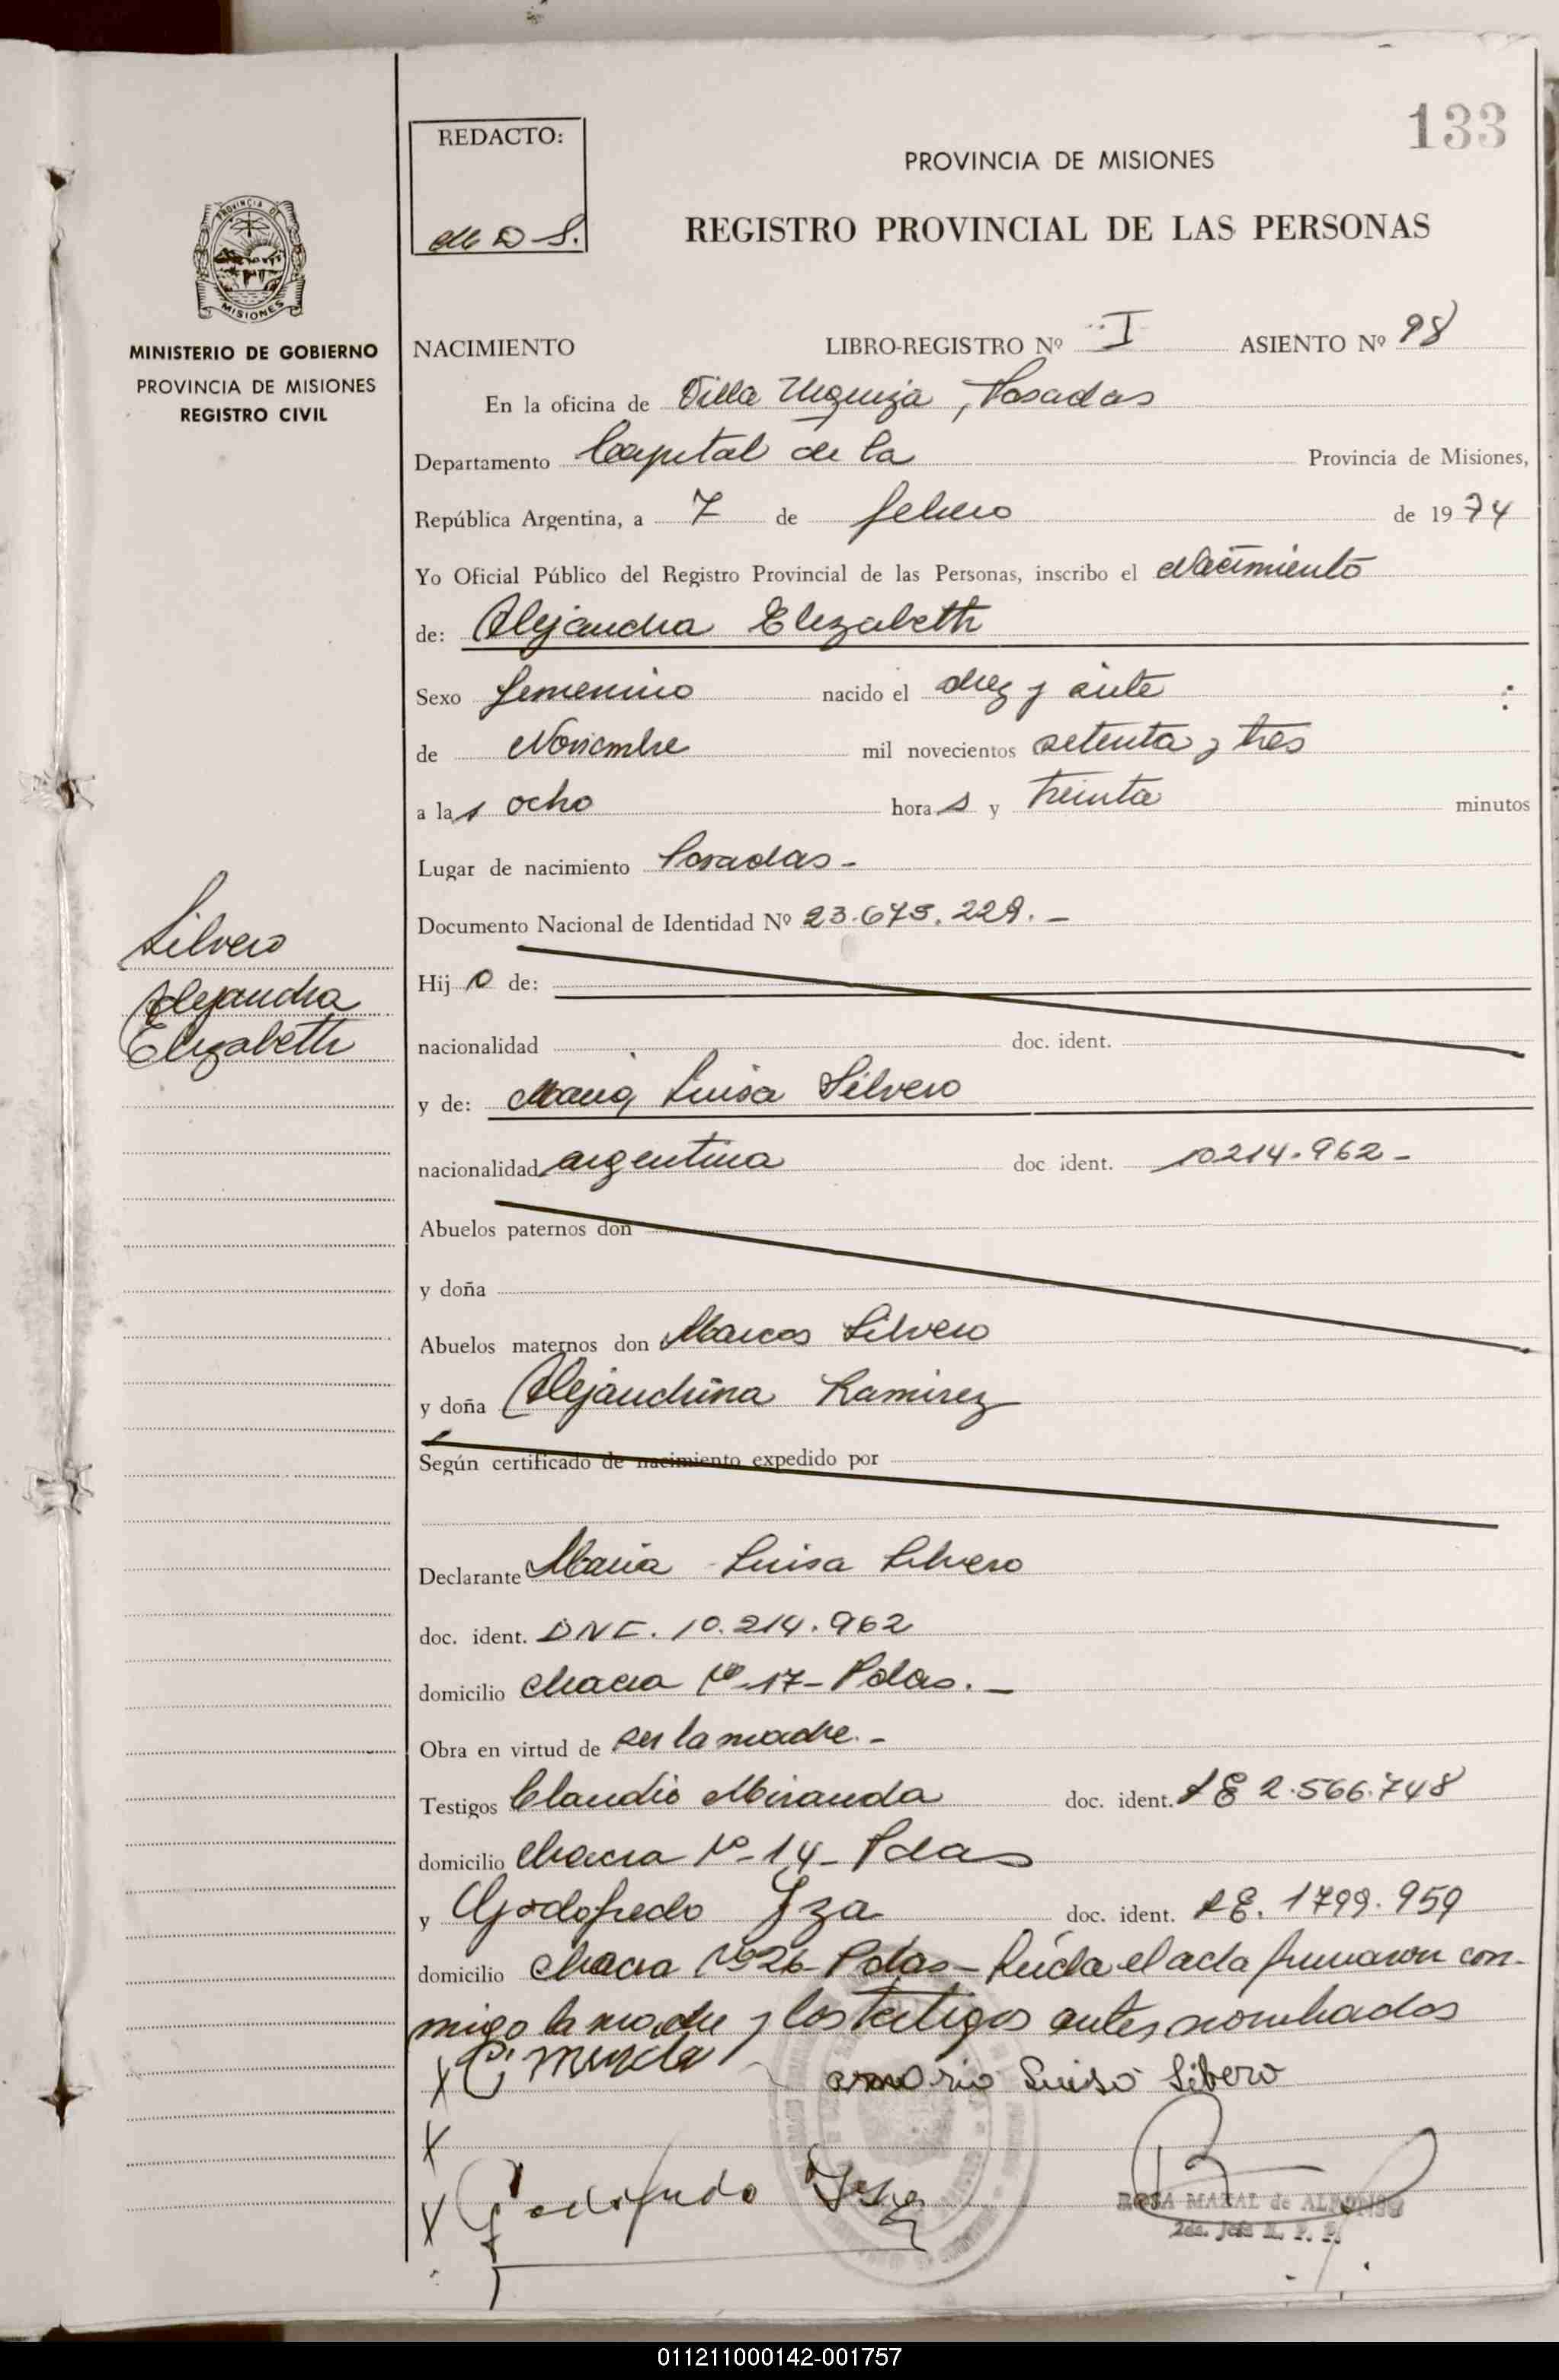 133
REDACTO:
PROVINCIA DE MISIONES
REGISTRO PROVINCIAL DE LAS PERSONAS
PROVINCIA DE
MISIONES
MINISTERIO DE GOBIERNO
PROVINCIA DE MISIONES
REGISTRO CIVIL
NACIMIENTO LIBRO-REGISTRO Nº I ASIENTO Nº 98
En la oficina de Villa Urquiza, Posadas
Departamento Capital de la Provincia de Misiones,
República Argentina, a 7 de febrero de 1974
Yo Oficial Público del Registro Provincial de las Personas, inscribo el Nacimiento
de: Alejandra Elizabeth
Sexo femenino nacido el diez y siete
de Noviembre mil novecientos setenta y tres
a las ocho horas y treinta minutos
Lugar de nacimiento Posadas -
Documento Nacional de Identidad Nº 23.675.229. -
Silvero
Alejandra
Elizabeth
Hijo de:
nacionalidad doc. ident.
y de: Maria Luisa Silvero
nacionalidad argentina doc ident. 10214.962 -
Abuelos paternos don
y doña
Abuelos maternos don Marcos Silvero
y doña Alejandrina Ramirez
Según certificado de nacimiento expedido por
Declarante Maria Luisa Silvero
doc. ident. DNI. 10.214.962
domicilio chacra Nº 17 - Pdas. -
Obra en virtud de ser la madre. -
Testigos Claudio Miranda doc. ident. LE 2.566.748
domicilio chacra Nº 14 - Pdas
y Godofredo Yza doc. ident. LE. 1799.959
domicilio chacra Nº 26 - Pdas - Leída el acta firmaron con-
migo la madre y los testigos antes nombrados
X C. Miranda
maria Luisa Silvero
X
X Godofredo
ROSA MAZAL de ALFONSO
2da. Jefe R. P. P.
011211000142-001757